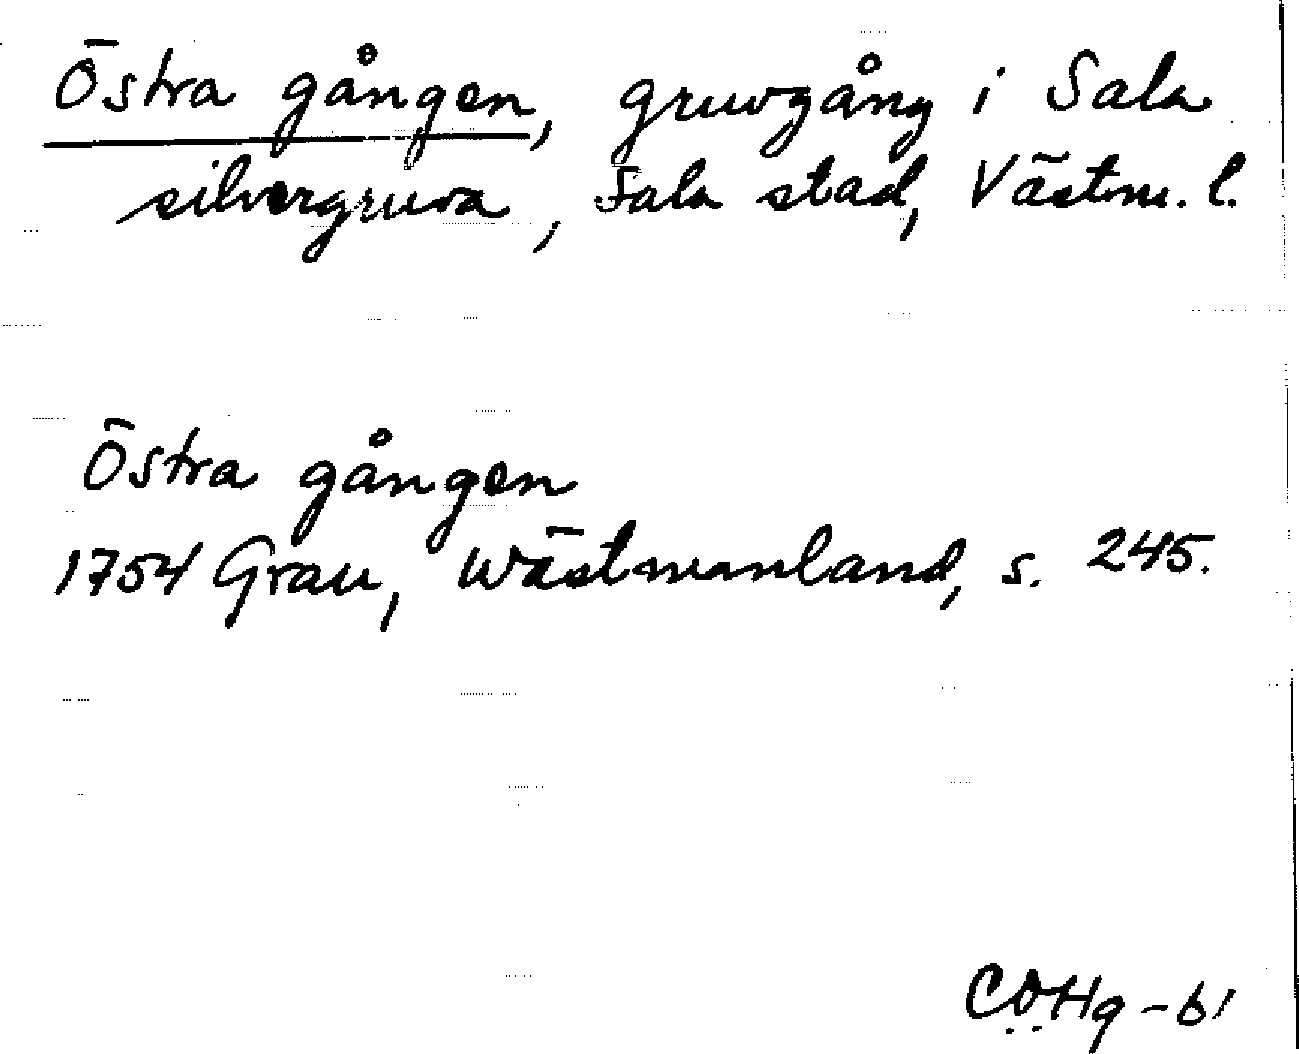 Östra gången, gruvgång i Sala
silvergruva, Sala stad, Västm. l.
Östra gången
1754 Grau, Wästmanland, s. 245.
COHg-61